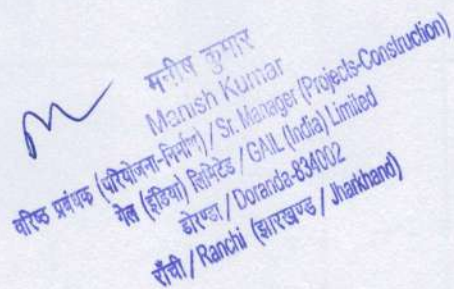 मनीष कुमार
Manish Kumar
वरिष्ठ प्रबंधक (परियोजना-निर्माण) / Sr. Manager (Projects-Construction)
गेल (इंडिया) लिमिटेड / GAIL (India) Limited
डोरण्डा / Doranda-834002
राँची / Ranchi (झारखण्ड / Jharkhand)